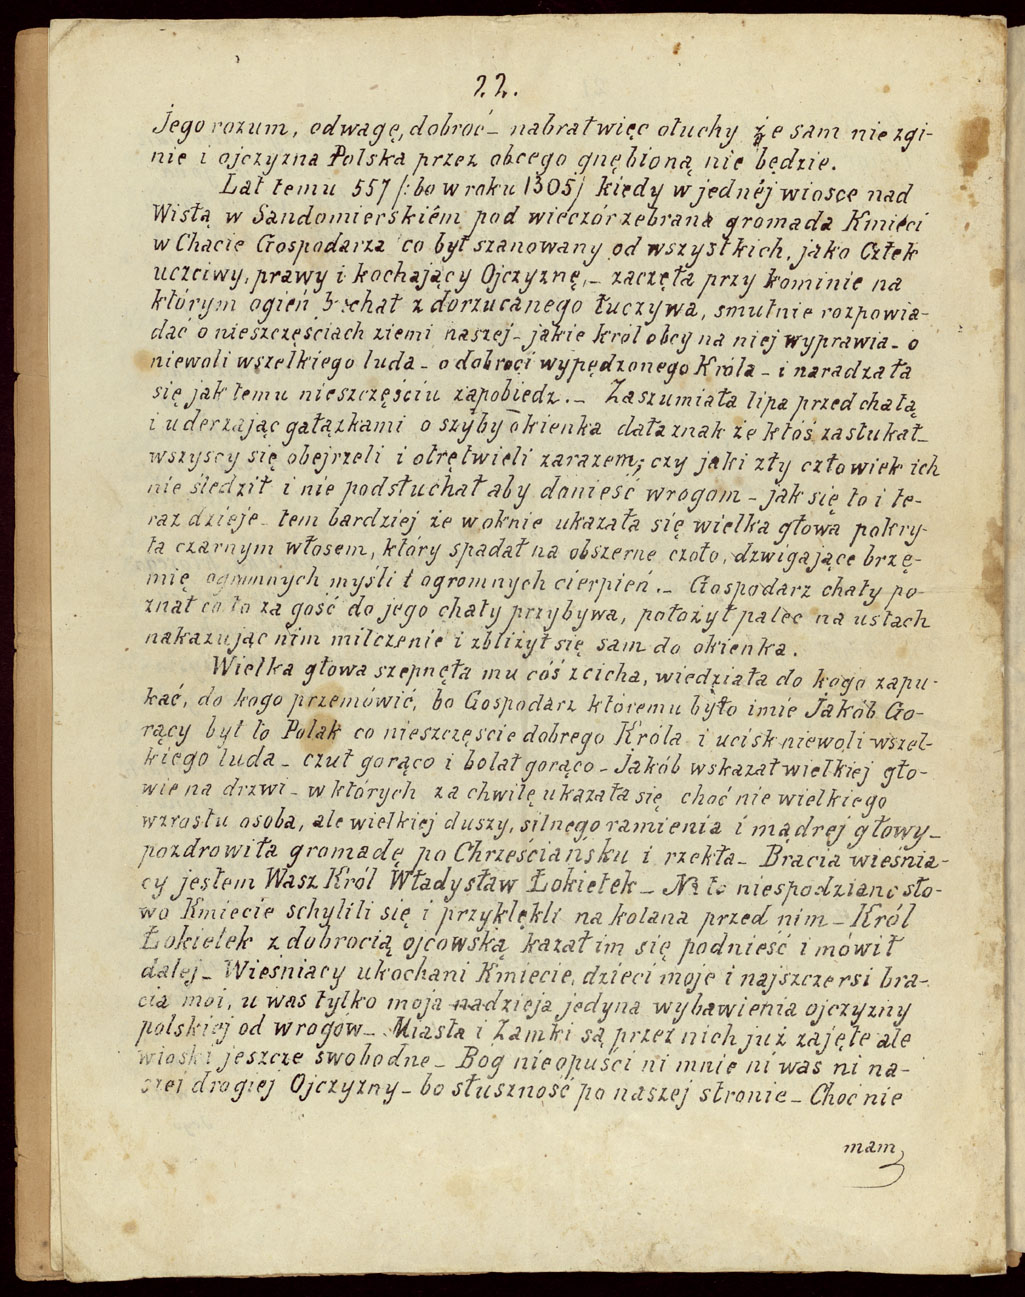 22.
Jego rozum, odwagę, dobroć – nabrał więc otuchy że sam nie zgi-
nie i ojczyzna Polska przez obcego gnębioną nie będzie.
Lat temu 557 /: bo w roku 1305/ kiedy w jednéj wiosce nad
Wisłą w Sandomierskiém pod wieczór zebrana gromada Kmieci
w Chacie Gospodarza co był szanowany od wszystkich, jako Człek
uczciwy, prawy i kochający Ojczyznę, – zaczęła przy kominie na
którym ogień buchał z dorzucanego łuczywa, smutnie rozpowia-
dać o nieszczęściach ziemi naszej – jakie król obcy na niej wyprawia – o
niewoli wszelkiego luda – o dobroci wypędzonego Króla – i naradzała
się jak temu nieszczęściu zapobiedz. – Zaszumiała lipa przed chatą
i uderzając gałązkami o szyby okienka dała znak że któś zastukał –
wszyscy się obejrzeli i otrętwieli zarazem, czy jaki zły człowiek ich
nie śledził i nie podsłuchał aby donieść wrogom – jak się to i te-
raz dzieje – tem bardziej że w oknie ukazała się wielka głowa pokry-
ta czarnym włosem, który spadał na obszerne czoło, dzwigające brzę-
mię ogromnych myśli i ogromnych cierpień. – Gospodarz chaty po-
znał co to za gość do jego chaty przybywa, położył palec na ustach
nakazując nim milczenie i zbliżył się sam do okienka.
Wielka głowa szepnęła mu cóś zcicha, wiedziała do kogo zapu-
kać, do kogo przemówić, bo Gospodarz któremu było imie Jakób Go-
rący był to Polak co nieszczęscie dobrego Króla i ucisk niewoli wszel-
kiego luda – czuł gorąco i bolał gorąco – Jakób wskazał wielkiej gło-
wie na drzwi – w których za chwilę ukazała się choć nie wielkiego
wzrostu osoba, ale wielkiej duszy, silnego ramienia i mądrej głowy –
pozdrowiła gromadę po Chrześciańsku i rzekła – Bracia wieśnia-
cy jestem Wasz Król Władysław Łokietek – Na to niespodziane sło-
wo Kmiecie schylili się i przyklękli na kolana przed nim – Król
Łokietek z dobrocią ojcowską kazał im się podnieść i mówił
dalej – Wieśniacy ukochani Kmiecie, dzieci moje i najszczersi bra-
cia moi, u was tylko moja nadzieja jedyna wybawienia ojczyzny
polskiej od wrogów – Miasta i Zamki są przez nich już zajęte ale
wioski jeszcze swobodne – Bog nieopuści ni mnie ni was ni na-
szej drogiej Ojczyzny – bo słuszność po naszej stronie – Choć nie
mam